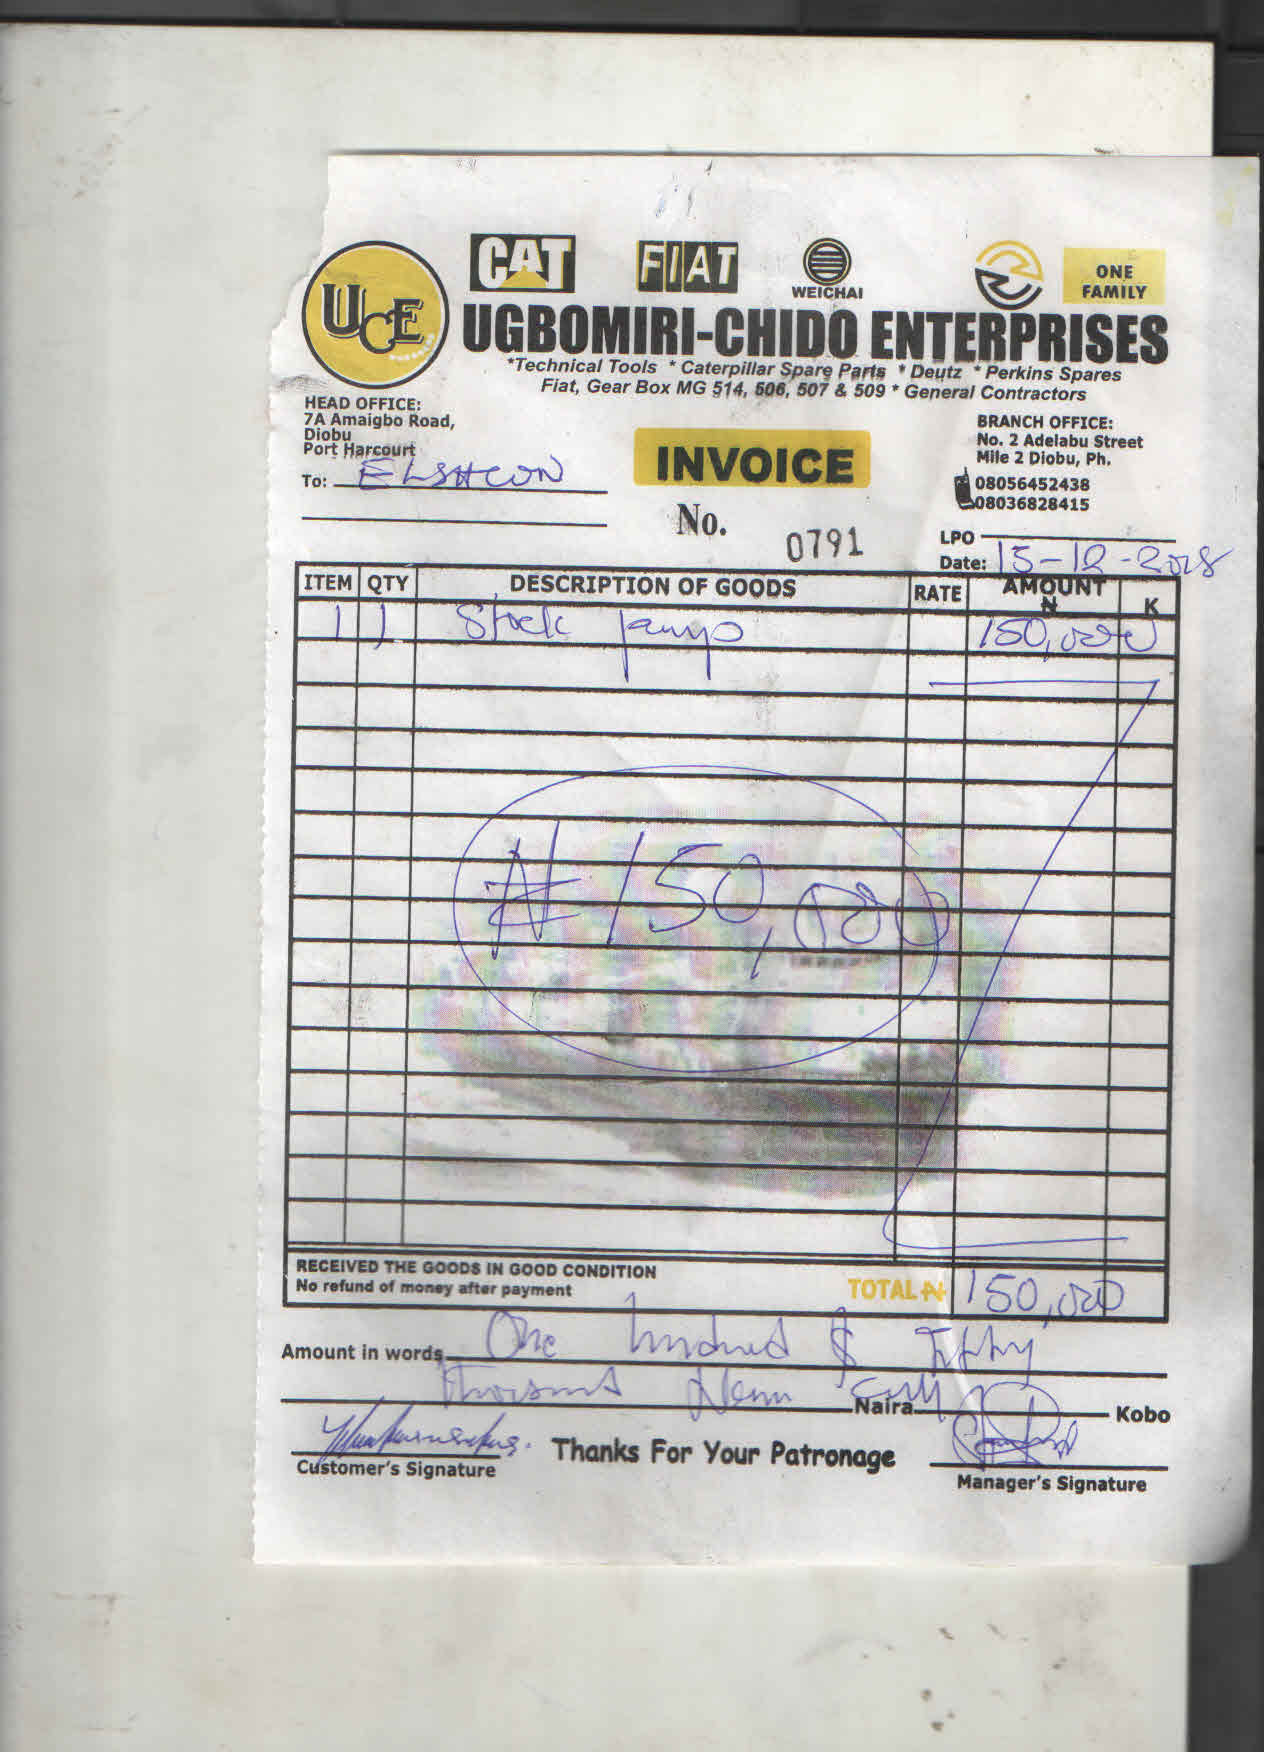 CAT FIAT WEICHAI ONE FAMILY
UCE
UGBOMIRI-CHIDO ENTERPRISES
*Technical Tools * Caterpillar Spare Parts * Deutz * Perkins Spares
Fiat, Gear Box MG 514, 506, 507 & 509 * General Contractors
HEAD OFFICE:
7A Amaigbo Road,
Diobu
Port Harcourt
BRANCH OFFICE:
No. 2 Adelabu Street
Mile 2 Diobu, Ph.
08056452438
08036828415
INVOICE
To: ELSHCON
No. 0791
LPO
Date: 15-12-2018
ITEM QTY DESCRIPTION OF GOODS RATE AMOUNT ₦ K
1 1 pump 150,000
₦150,000
RECEIVED THE GOODS IN GOOD CONDITION
No refund of money after payment
TOTAL ₦ 150,000
Amount in words One hundred & fifty
thousand Naira only Naira Kobo
Customer's Signature
Thanks For Your Patronage
Manager's Signature